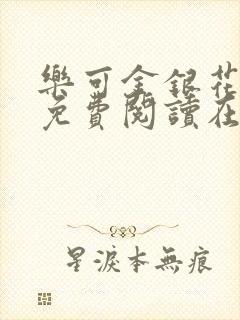 樂可金銀花
免費閱讀在
星淚本無痕